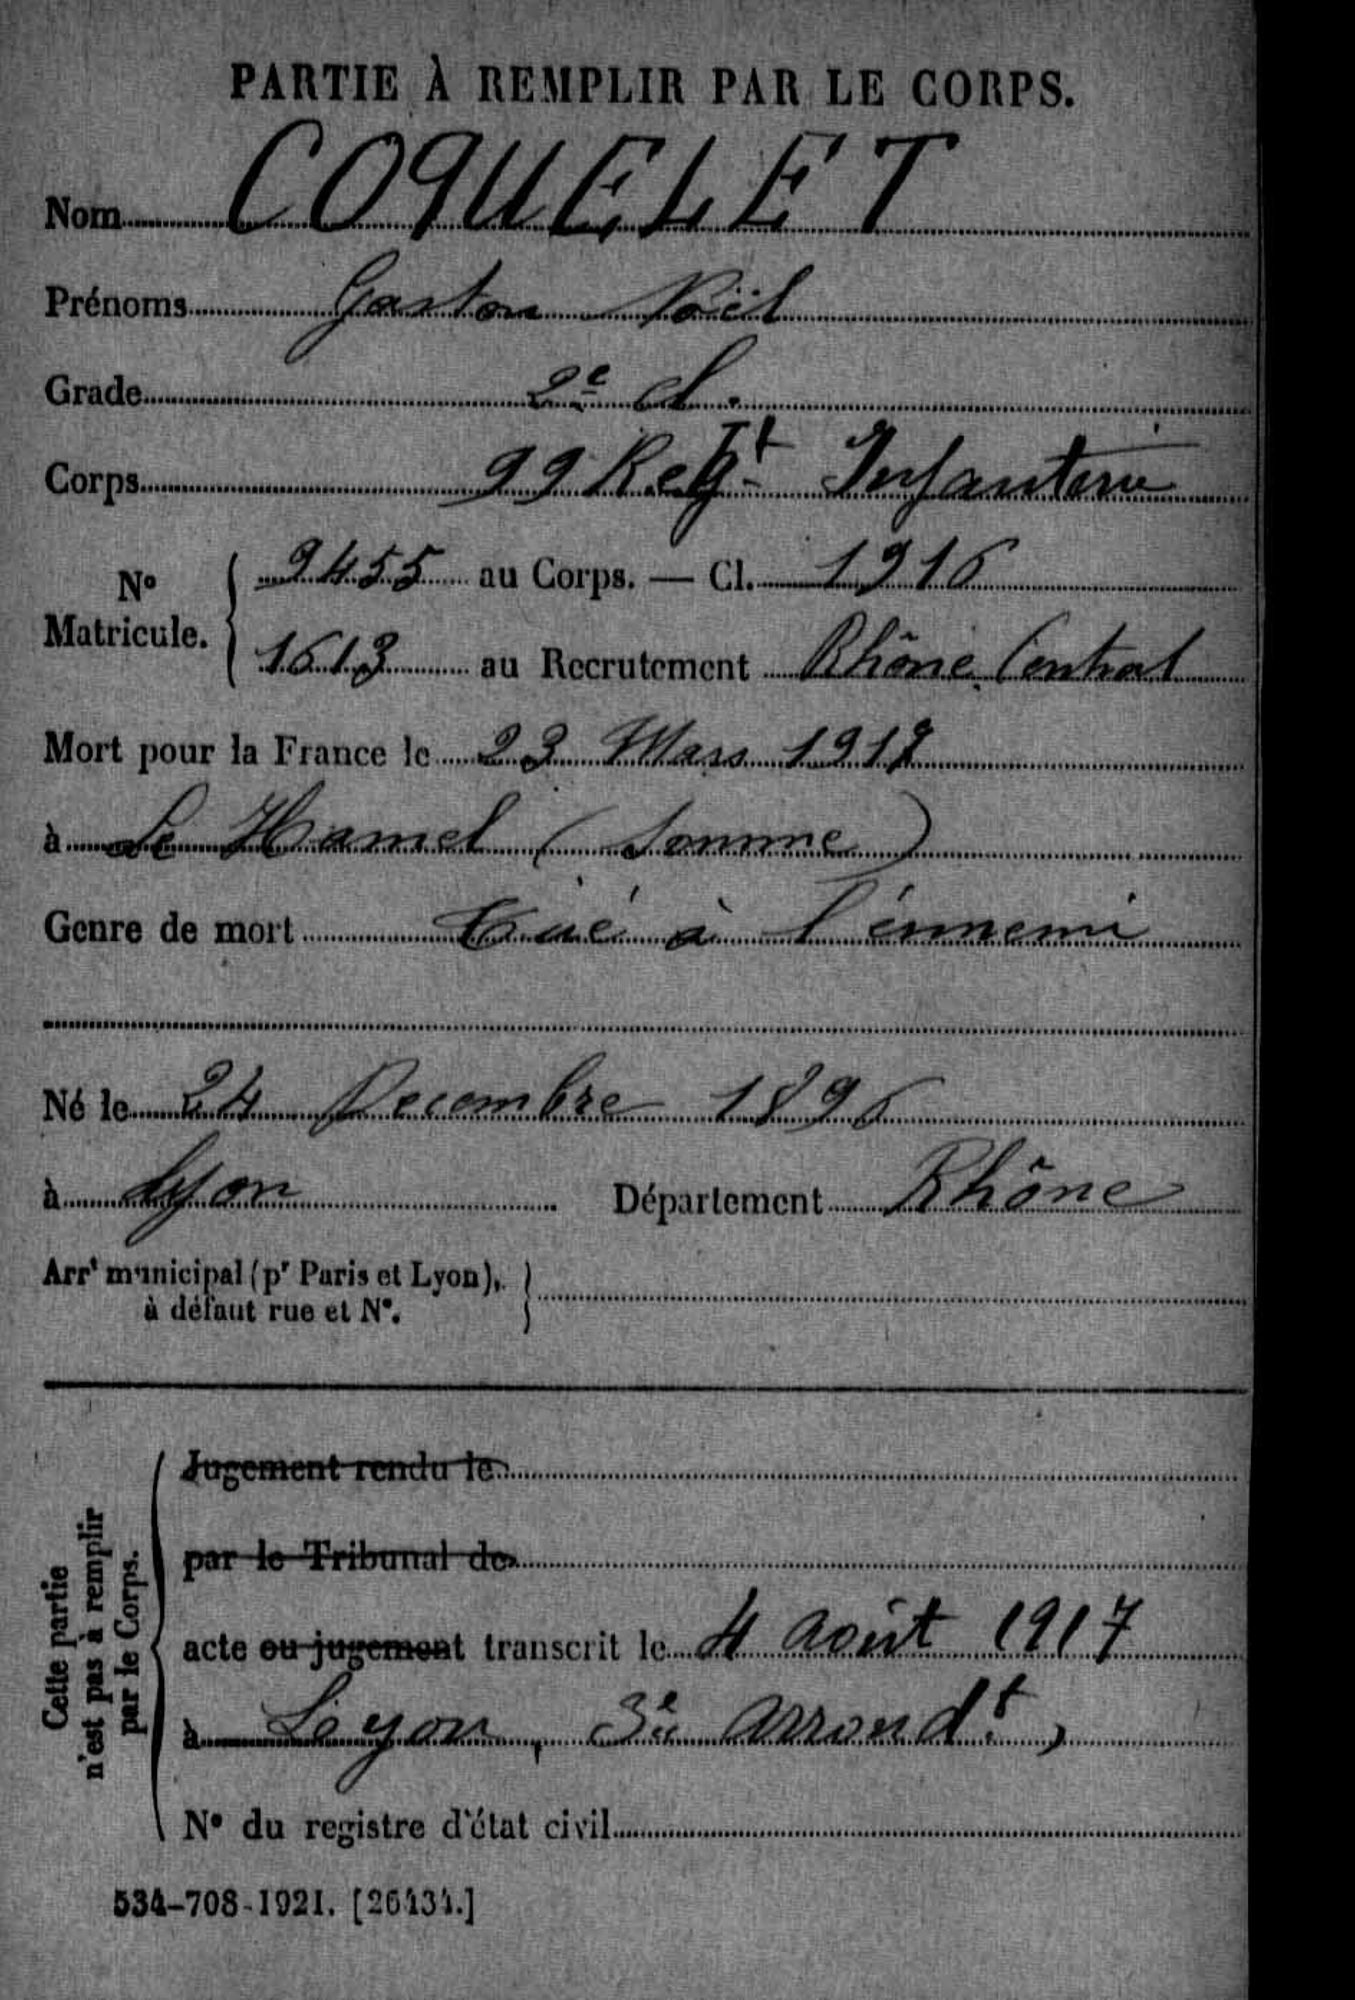 PARTIE À REMPLIR PAR LE CORPS.
Nom COQUELET
Prénoms Gaston Noël
Grade 2e cl.
Corps 99 Regt Infanterie
No Matricule. 9455 au Corps. — Cl. 1916
1613 au Recrutement Rhône Central
Mort pour la France le 23 Mars 1917
à Le Hamel (Somme)
Genre de mort Tué à l'énnemi
Né le 24 Decembre 1896
à Lyon Département Rhône
Arrt municipal (pr Paris et Lyon),
à défaut rue et No.
Cette partie
n'est pas à remplir
par le Corps.
Jugement rendu le
par le Tribunal de
acte ou jugement transcrit le 4 août 1917
à Lyon, 3e arrondt,
No du registre d'état civil
534-708-1921. [26434.]